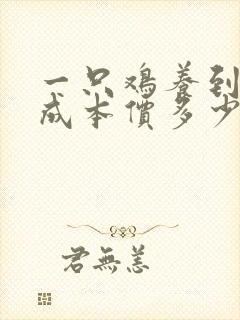 一只鸡养到
成本價多少
君無恙